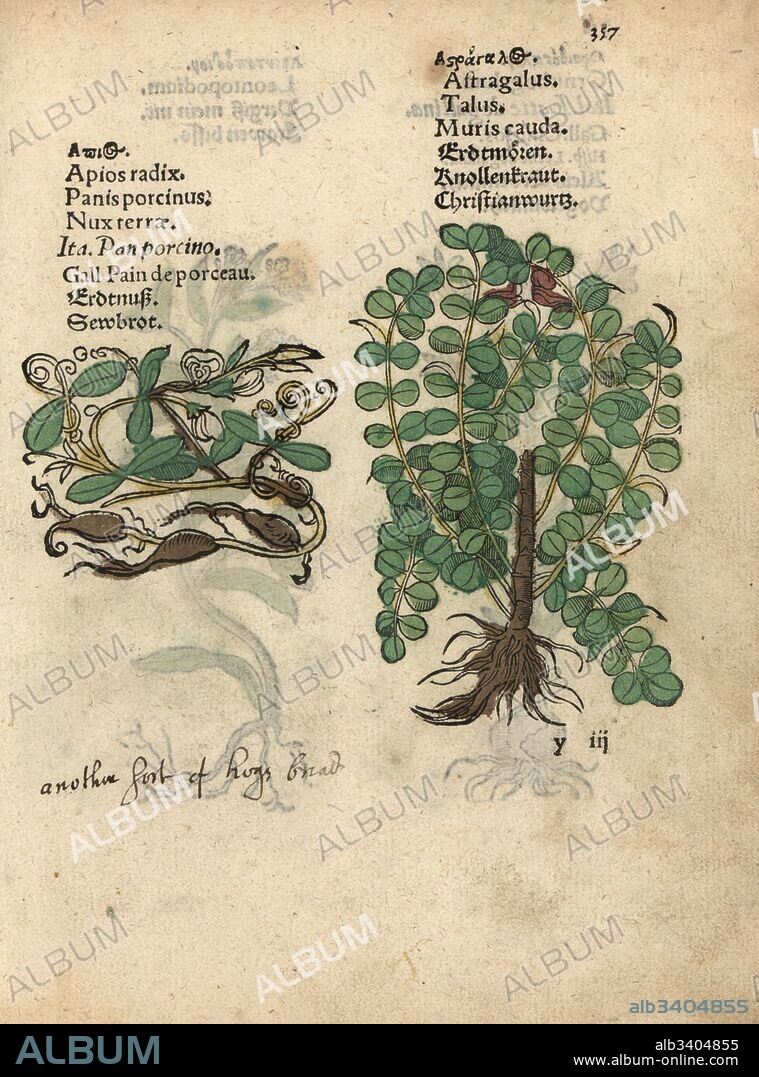 357
Apios radix.
Panis porcinus.
Nux terræ.
Ita. Pan porcino.
Gall. Pain de porceau.
Erdtnuß.
Sewbrot.
Astragalus.
Talus.
Muris cauda.
Erdtmören.
Knollenkraut.
Christianwurtz.
another sort of hogs bread
y iij
ALBUM
alb3404855
ALBUM
alb3404855
www.album-online.com